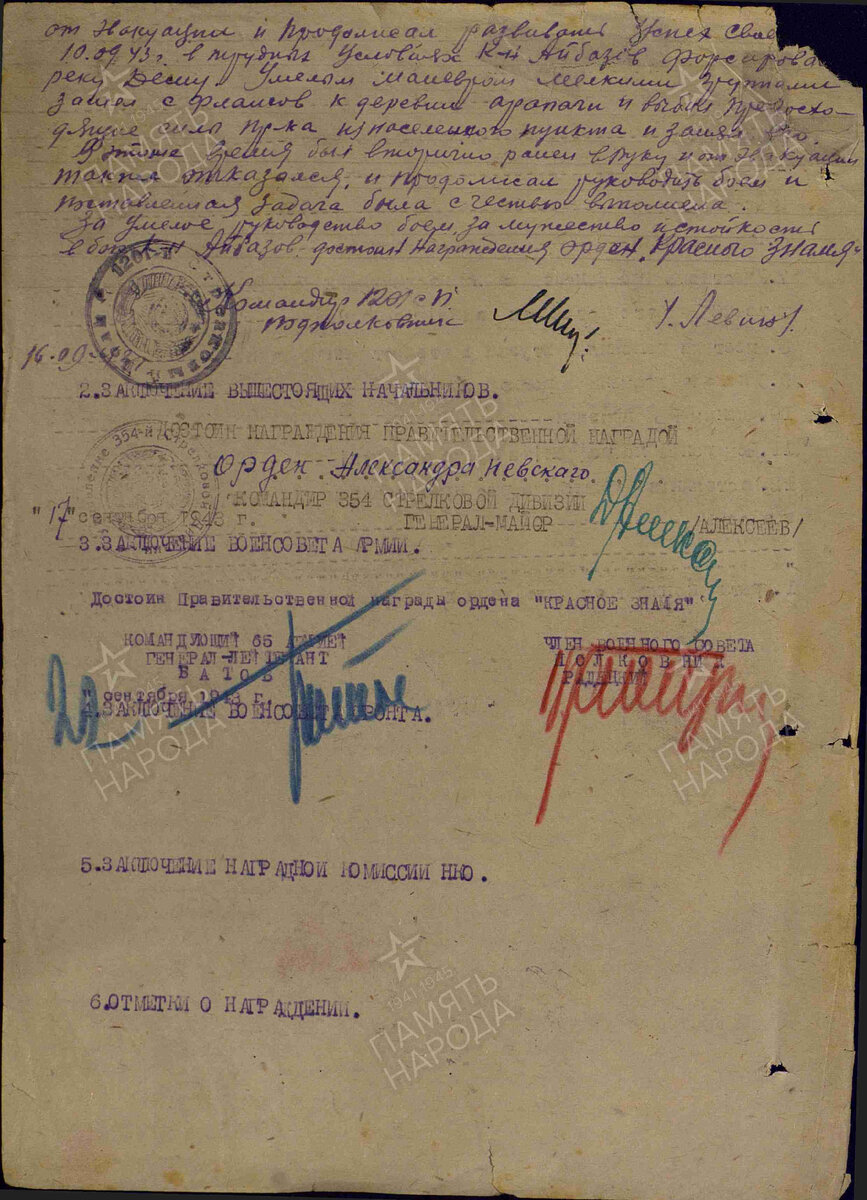 от эвакуации и продолжал развивать успех свое
10.09.43 г. в трудных условиях к-н Айбазов форсирова
реку Десну. Умелым маневром мелкими группами
зашел с флангов к деревни и выбил превосхо-
дящие силы пр-ка из населенного пункта и занял его.
В этоже время был вторично ранен в руку и от эвакуации
также отказался, и продолжал руководить боем и
поставленная задача была с честью выполнена.
За умелое руководство боем, за мужество и стойкость
в бою к-н Айбазов достоин награждения орден "Красного Знамя"
Командир 1201 с.п.
подполковник /Левин/.
16.09.43
2.ЗАКЛЮЧЕНИЕ ВЫШЕСТОЯЩИХ НАЧАЛЬНИКОВ.
ДОСТОИН НАГРАЖДЕНИЯ ПРАВИТЕЛЬСТВЕННОЙ НАГРАДОЙ
Орден Александра Невского
КОМАНДИР 354 СТРЕЛКОВОЙ ДИВИЗИИ
"17" сентября 1943 г. ГЕНЕРАЛ-МАЙОР /АЛЕКСЕЕВ/
3.ЗАКЛЮЧЕНИЕ ВОЕНСОВЕТА АРМИИ.
Достоин Правительственной награды ордена "КРАСНОЕ ЗНАМЯ"
КОМАНДУЮЩИЙ 65 АРМИЕЙ ЧЛЕН ВОЕННОГО СОВЕТА
ГЕНЕРАЛ-ЛЕЙТЕНАНТ ПОЛКОВНИК
БАТОВ РАДЕЦКИЙ
" сентября 1943 г.
4.ЗАКЛЮЧЕНИЕ ВОЕНСОВЕТА ФРОНТА.
5.ЗАКЛЮЧЕНИЕ НАГРАДНОЙ КОМИССИИ НКО.
6.ОТМЕТКИ О НАГРАЖДЕНИИ.
1941-1945
ПАМЯТЬ
НАРОДА